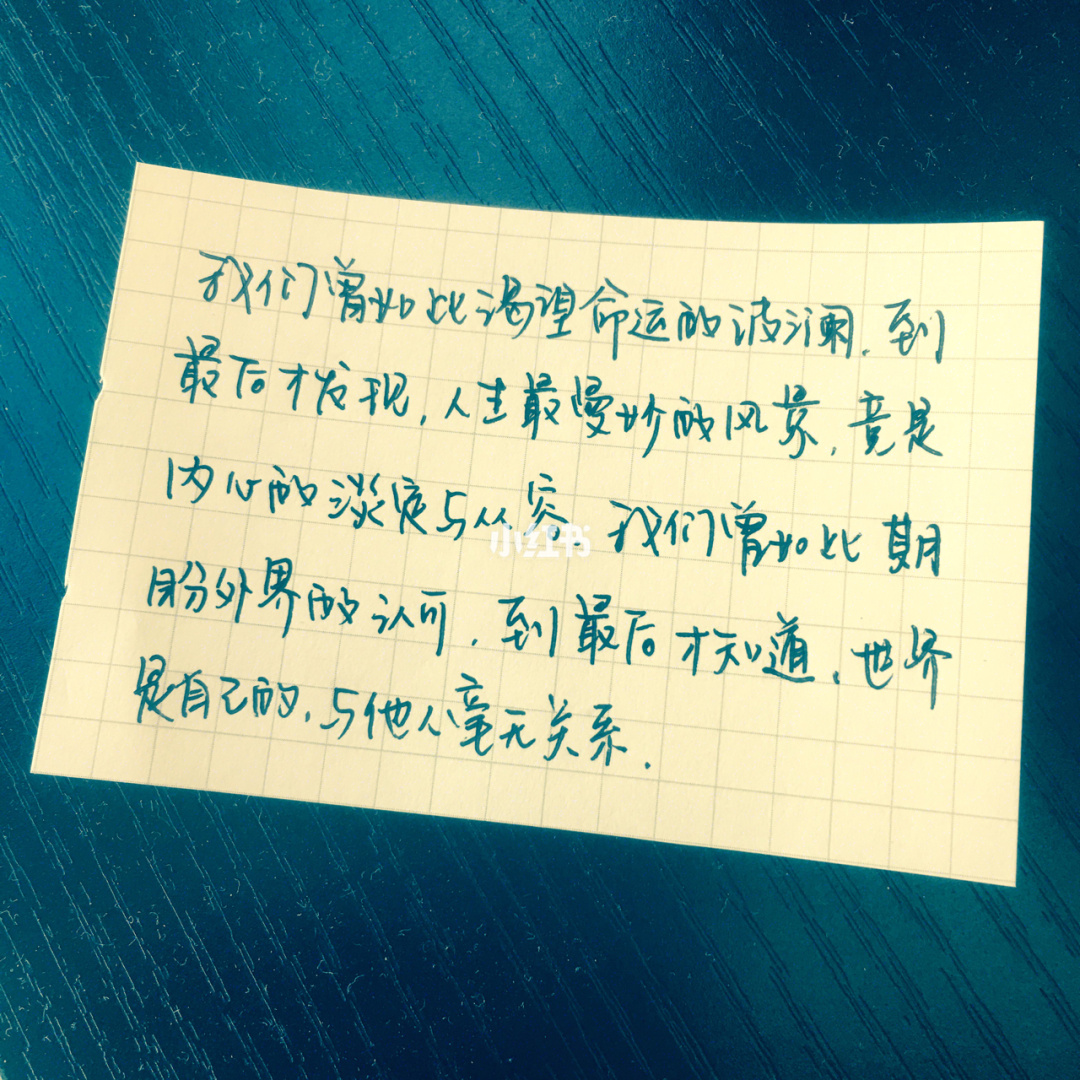 我们曾如此渴望命运的波澜，到
最后才发现，人生最曼妙的风景，竟是
内心的淡定与从容。我们曾如此期
盼外界的认可，到最后才知道，世界
是自己的，与他人毫无关系．
小红书